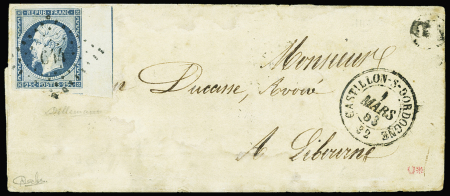 REPUB. FRANC.
25c. POSTES 25c.
Monsieur
Ducasse, Avoué
A Libourne
CASTILLON-S-DORDOGNE
1
MARS
53
32